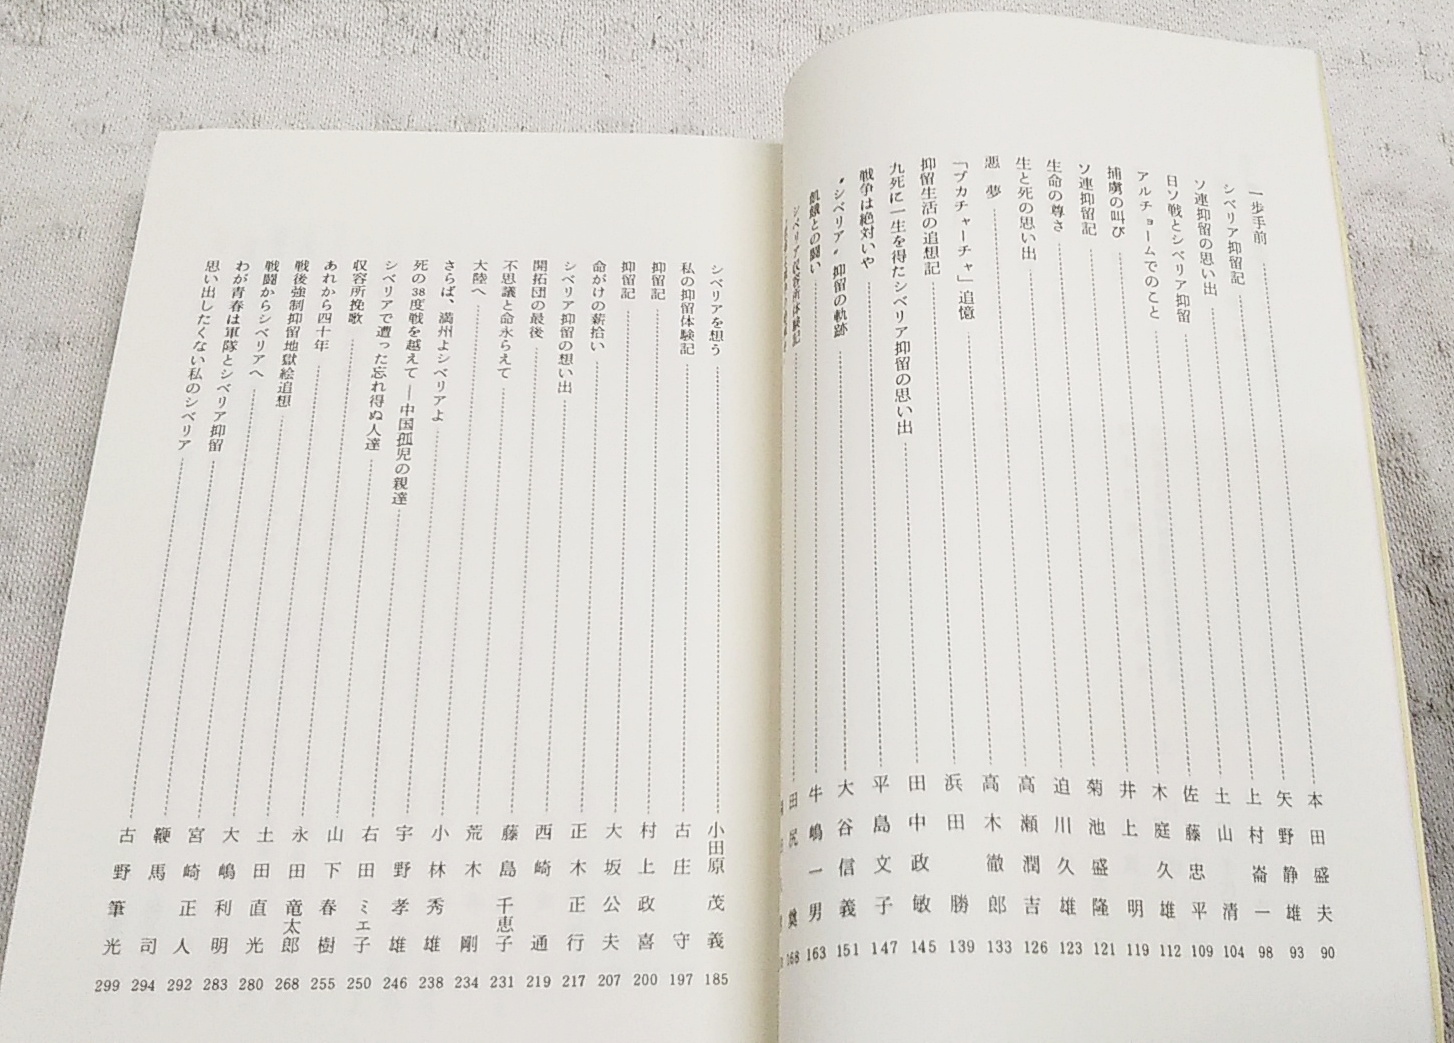 一歩手前 本田盛夫 90
シベリア抑留記 矢野静雄 93
ソ連抑留の思い出 上村崙一 98
日ソ戦とシベリア抑留 土山清 104
アルチョームでのこと 佐藤忠平 109
捕虜の叫び 木庭久雄 112
ソ連抑留記 井上明 119
生命の尊さ 菊池盛隆 121
生と死の思い出 迫川久雄 123
悪夢 高瀬潤吉 126
「ブカチャーチャ」追憶 高木徹郎 133
抑留生活の追想記 浜田勝 139
九死に一生を得たシベリア抑留の思い出 田中政敏 145
戦争は絶対いや 平島文子 147
〝シベリア〟抑留の軌跡 大谷信義 151
飢餓との闘い 牛嶋一男 163
シベリア収容所体験記 田尻 168
シベリアを想う 小田原茂義 185
私の抑留体験記 古庄守 197
抑留記 村上政喜 200
抑留記 大坂公夫 207
命がけの薪拾い 正木正行 217
シベリア抑留の想い出 西崎通 219
開拓団の最後 藤島千恵子 231
不思議と命永らえて 荒木剛 234
大陸へ 小林秀雄 238
さらば、満州よシベリアよ 宇野孝雄 246
死の38度戦を越えて ―中国孤児の親達 右田ミエ子 250
シベリアで遭った忘れ得ぬ人達 山下春樹 255
収容所挽歌 永田竜太郎 268
あれから四十年 土田直光 280
戦後強制抑留地獄絵追想 大嶋利明 283
戦闘からシベリアへ 宮崎正人 292
わが青春は軍隊とシベリア抑留 鞭馬司 294
思い出したくない私のシベリア 古野筆光 299